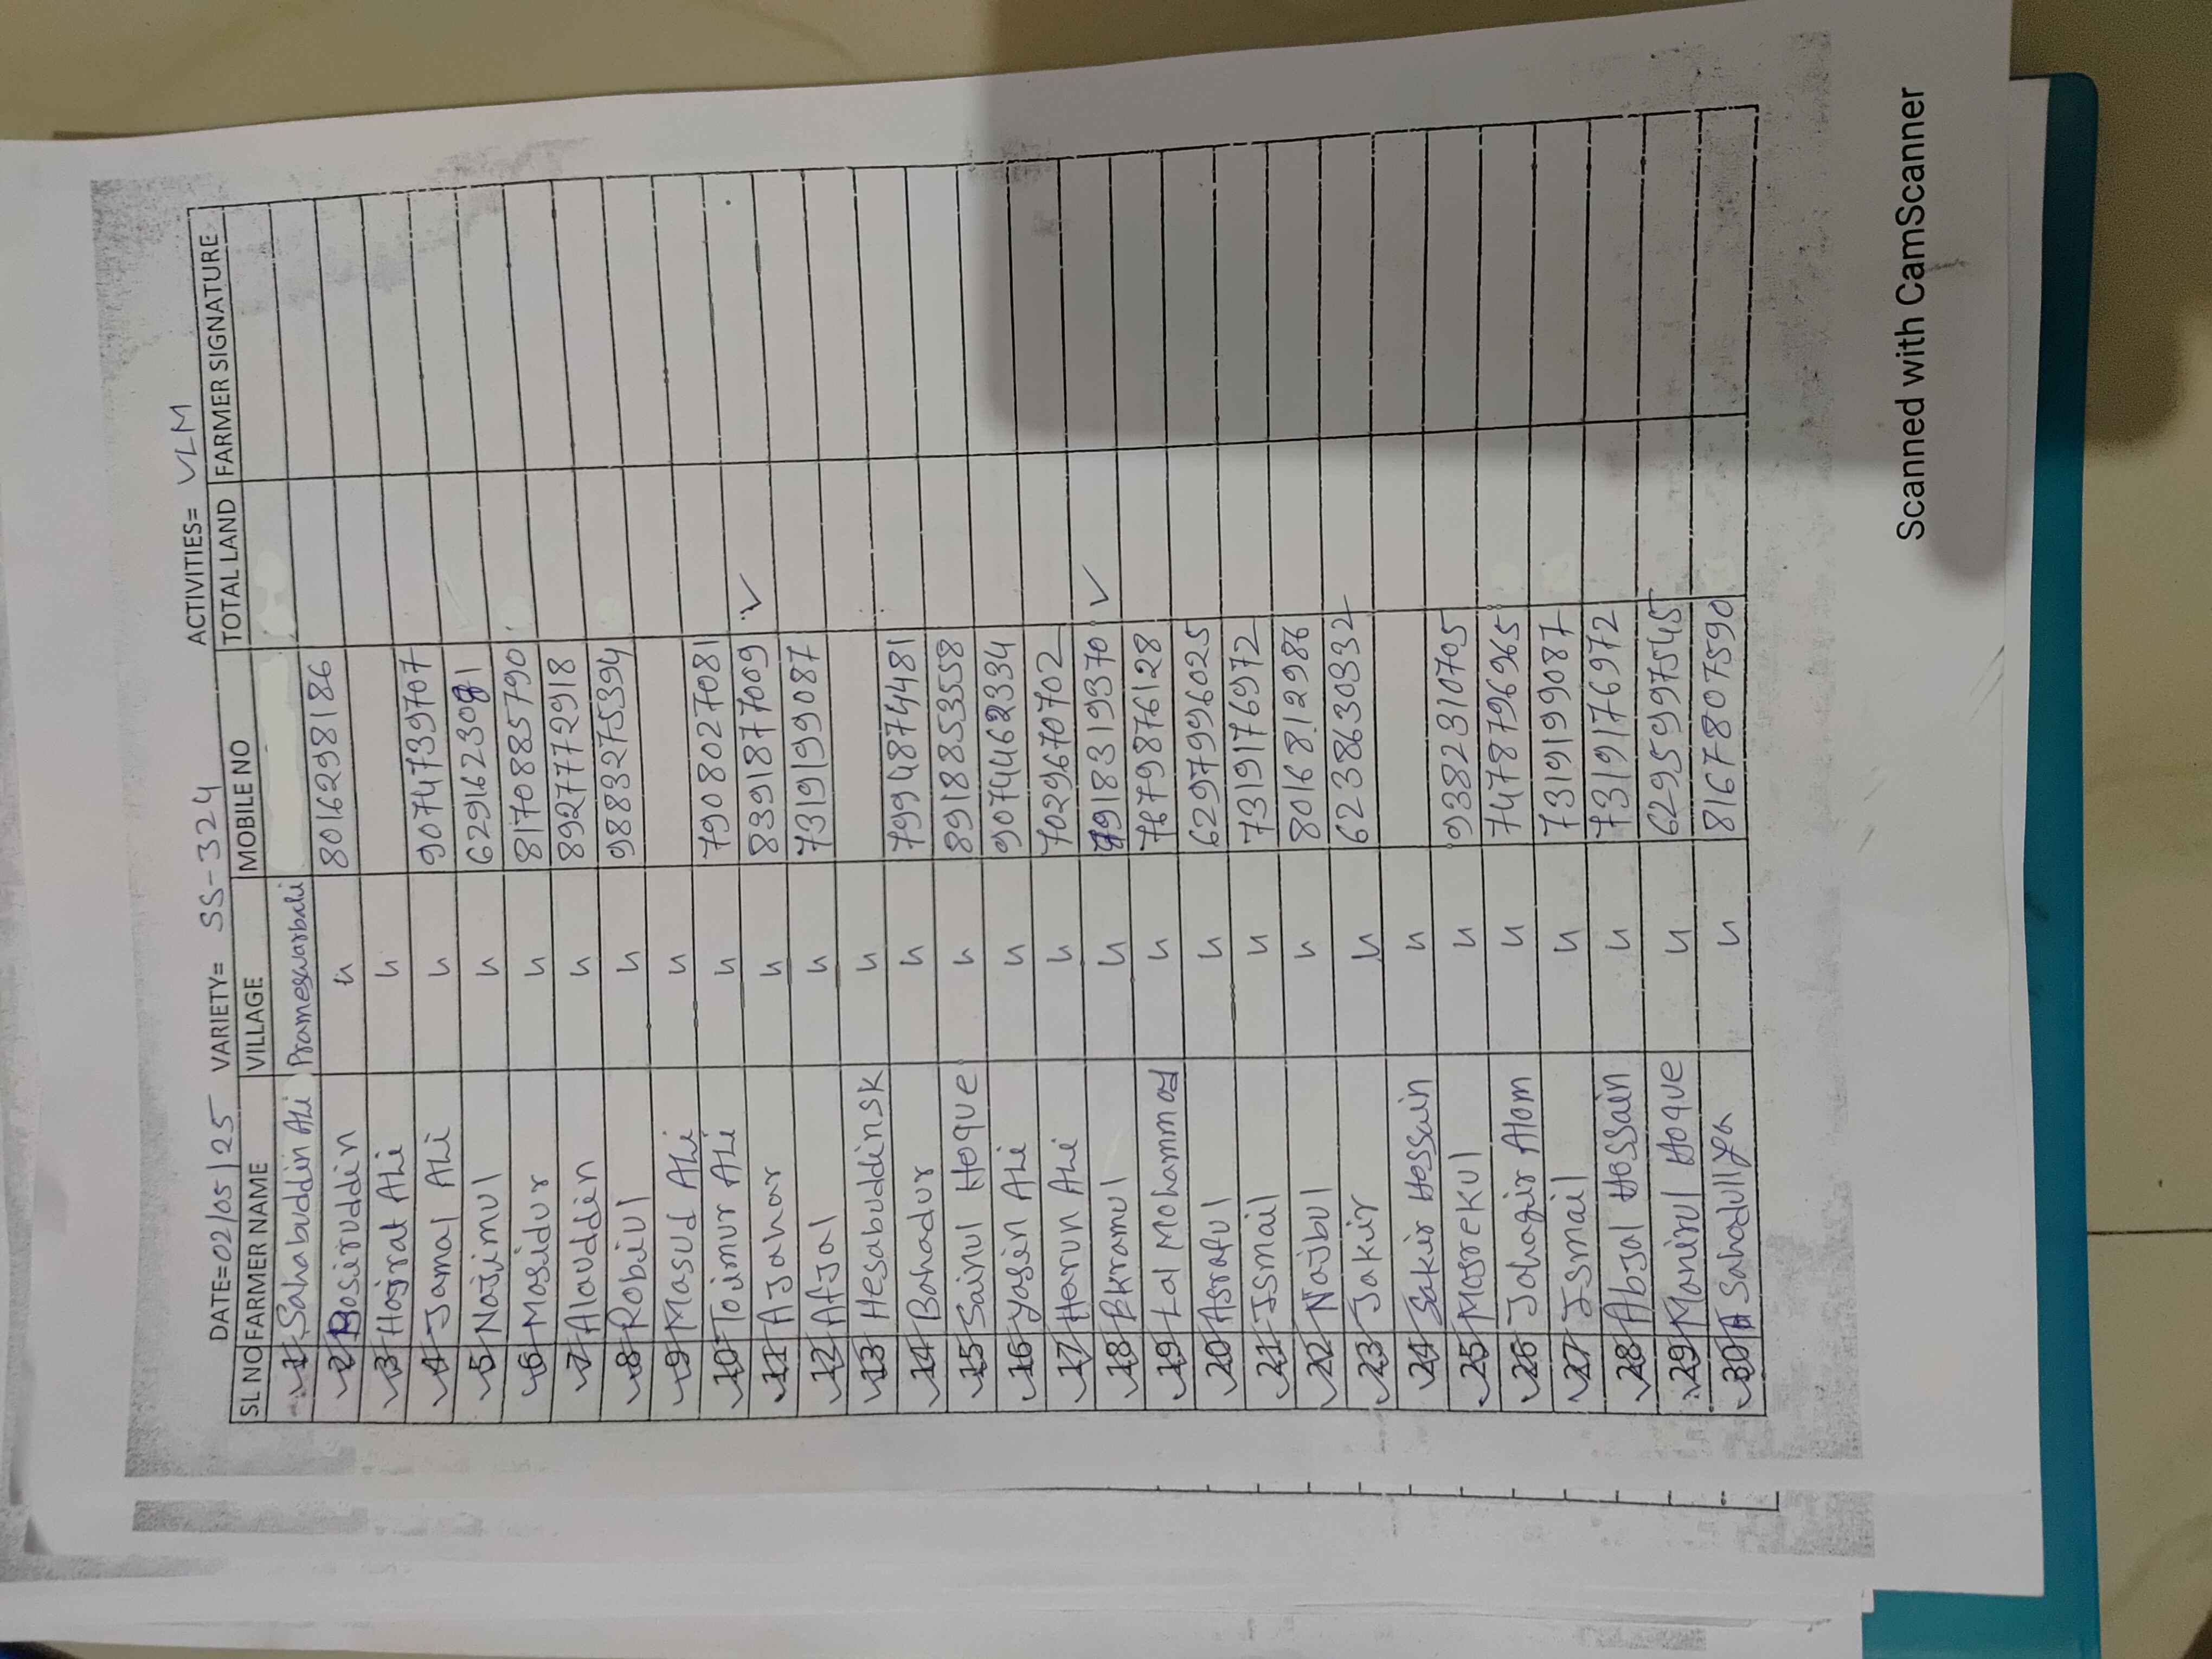 DATE=02/05/25 VARIETY= SS-324 ACTIVITIES= VLM
SL NO FARMER NAME VILLAGE MOBILE NO TOTAL LAND FARMER SIGNATURE
1 Sahabuddin Ali Prameswarbali
2 Bosiruddin u 8016298186
3 Hajrat Ali u
4 Jamal Ali u 9074739707
5 Najimul u 6291623081
6 Mosidur u 8170885790
7 Alauddin u 8927772918
8 Robiul u 9883275394
9 Masud Ali u
10 Toimur Ali u 7908027081
11 AJahar u 8391877009 ✓
12 AfJal u 7319199087
13 Hesabuddinsk u
14 Bahadur u 7994874481
15 Sainul Hoque u 8918853558
16 Yasin Ali u 9074462334
17 Harun Ali u 7029670702
18 Ekramul u 918319370 ✓
19 Lal Mohammad u 7679876128
20 Asraful u 6297996025
21 Ismail u 7319176972
22 Najbul u 8016812986
23 Jakir u 6238630332
24 Sakir Hossain u
25 Mosrekul u 9382310705
26 Jahagir Alom u 7478796965
27 Ismail u 7319199087
28 Abjal Hossain u 7319176972
29 Manirul Hoque u 6295997545
30 Sahadullya u 8167807590
Scanned with CamScanner